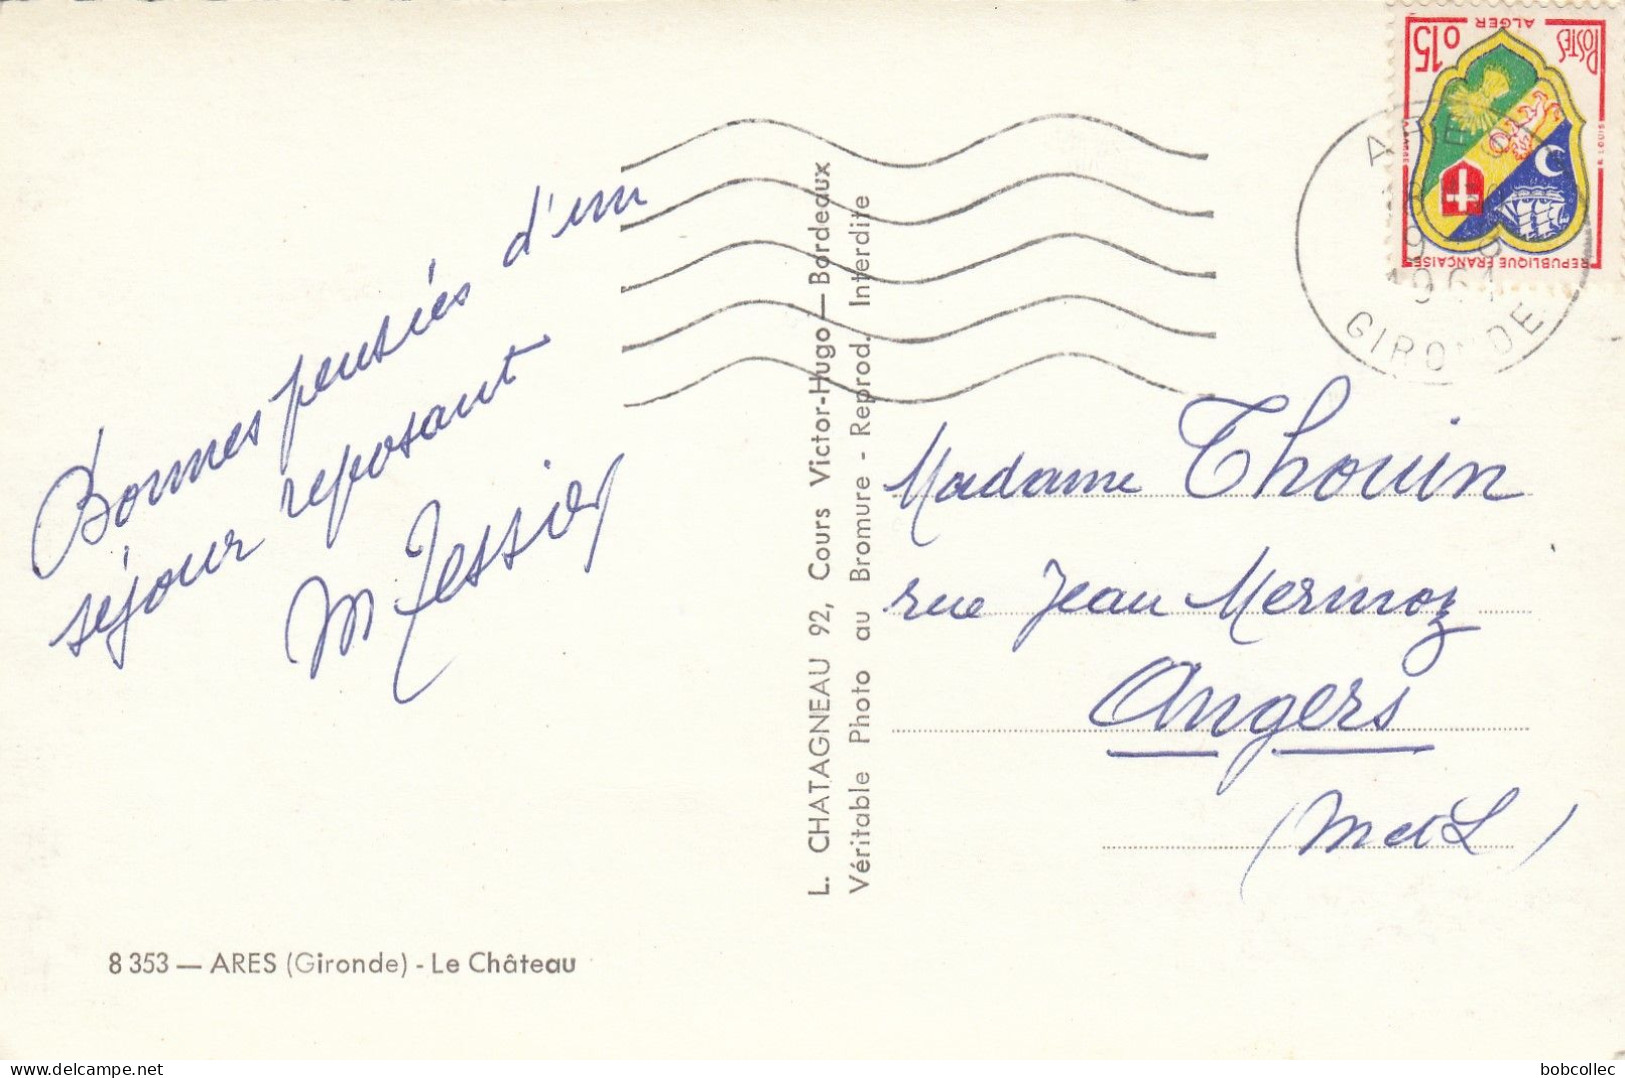 Bonnes pensées d'un
séjour reposant
M Tessier
8 353 — ARES (Gironde) - Le Château
L. CHATAGNEAU 92, Cours Victor-Hugo — Bordeaux
Véritable Photo au Bromure - Reprod. Interdite
POSTES
0,15
ALGER
REPUBLIQUE FRANÇAISE
ARES
1961
GIRONDE
Madame Thouin
rue Jean Mermoz
Angers
(M et L)
bobcollec